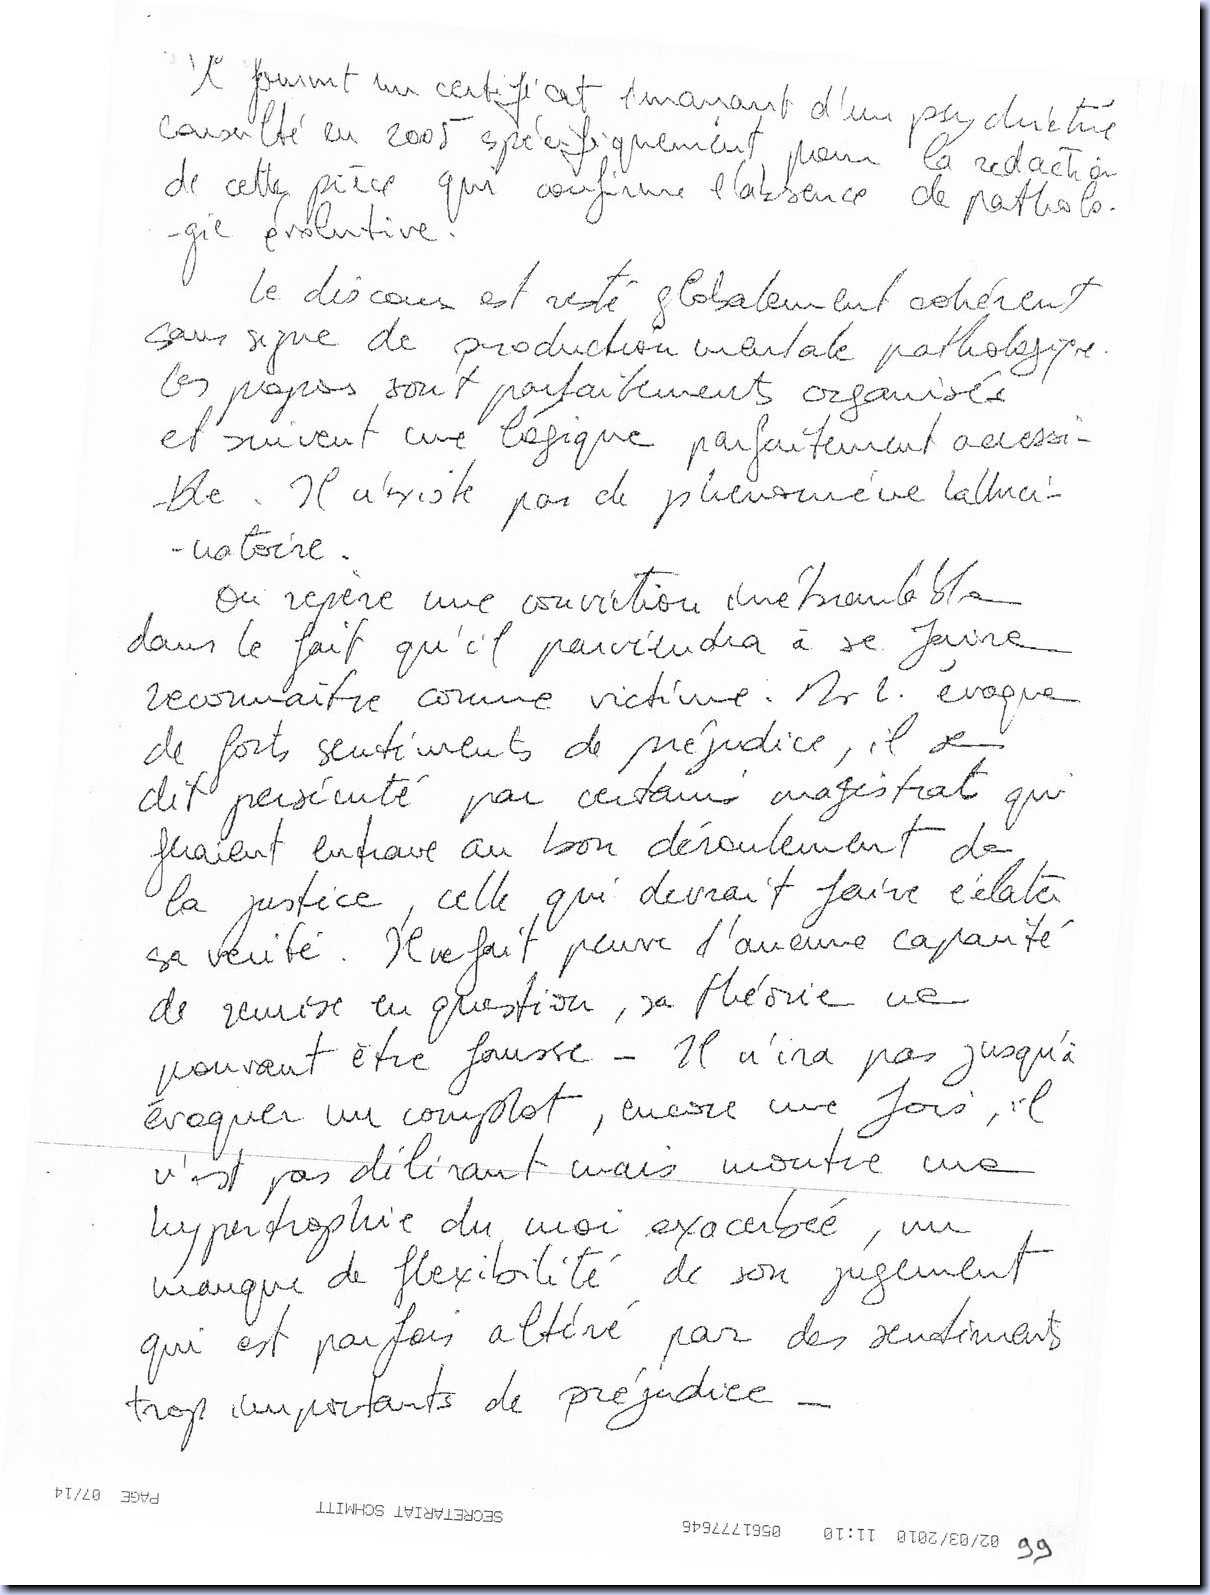 Il fournit un certificat émanant d'un psychiatre
consulté en 2005 spécifiquement pour la rédaction
de cette pièce qui confirme l'absence de patholo-
-gie évolutive.
Le discours est resté globalement cohérent
sans signe de production mentale pathologique.
Les propos sont parfaitements organisés
et suivent une logique parfaitement accessi-
-ble. Il n'existe pas de phénomène halluci-
-natoire.
On repère une conviction inébranlable
dans le fait qu'il parviendra à se faire
reconnaitre comme victime. Mr L. évoque
de forts sentiments de préjudice, il se
dit persécuté par certains magistrats qui
feraient entrave au bon déroulement de
la justice, celle qui devrait faire éclater
sa vérité. Il ne fait preuve d'aucune capacité
de remise en question, sa théorie ne
pouvant être fausse - Il n'ira pas jusqu'à
évoquer un complot, encore une fois, il
n'est pas délirant mais montre une
hypertrophie du moi exacerbée, un
manque de flexibilité de son jugement
qui est parfois altéré par des sentiments
trop importants de préjudice -
02/03/2010 11:10 0561777646 SECRETARIAT SCHMITT PAGE 07/14
99